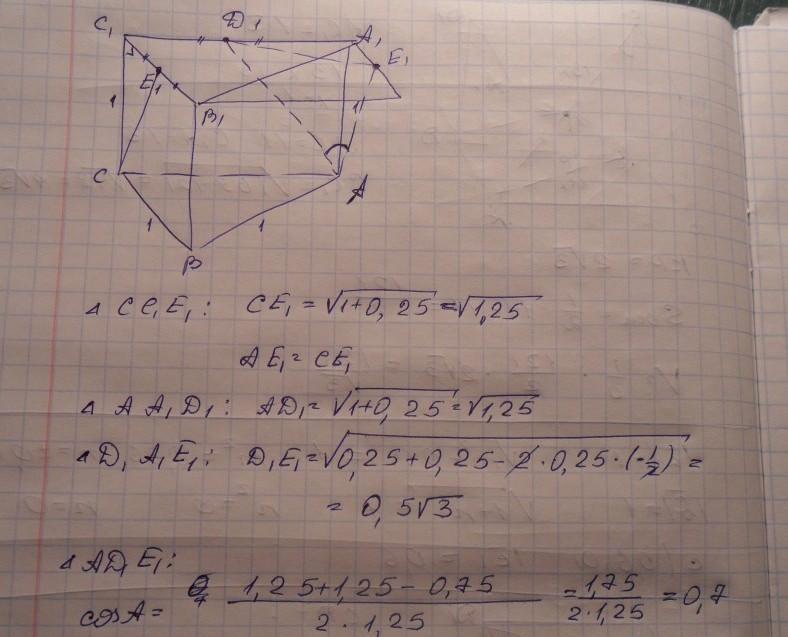 C₁ D₁ A₁
E₁ E₁
1 B₁ 1
C A
1 1
B
△ CC₁E₁: CE₁ = √(1+0,25) = √1,25
AE₁ = CE₁
△ AA₁D₁: AD₁ = √(1+0,25) = √1,25
△ D₁A₁E₁: D₁E₁ = √(0,25+0,25-2·0,25·(-1/2)) =
= 0,5√3
△ AD₁E₁:
cosA = (1,25+1,25-0,75)/(2·1,25) = 1,75/(2·1,25) = 0,7